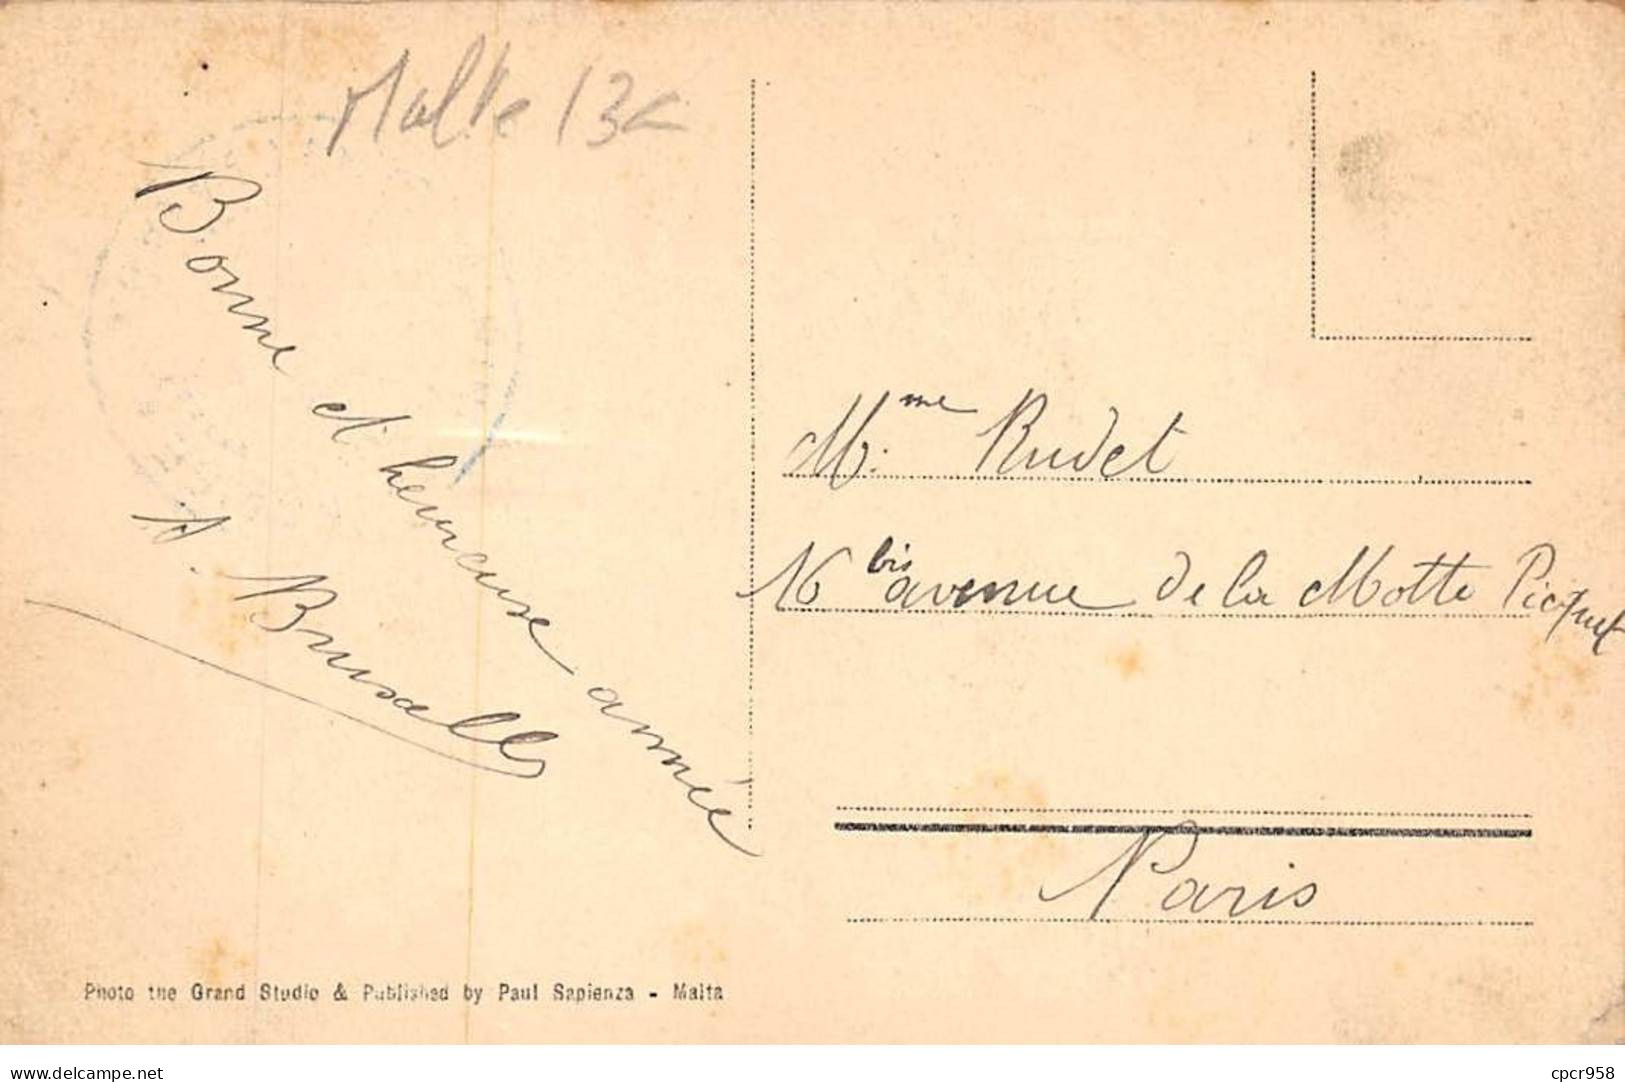 Malte 13
Bonne et heureuse année
A. Bruxelle
Mme. Rudet
16 bis avenue de la Motte Picquet
Paris
Photo the Grand Studio & Published by Paul Sapienza - Malta
www.delcampe.net
cpcr958